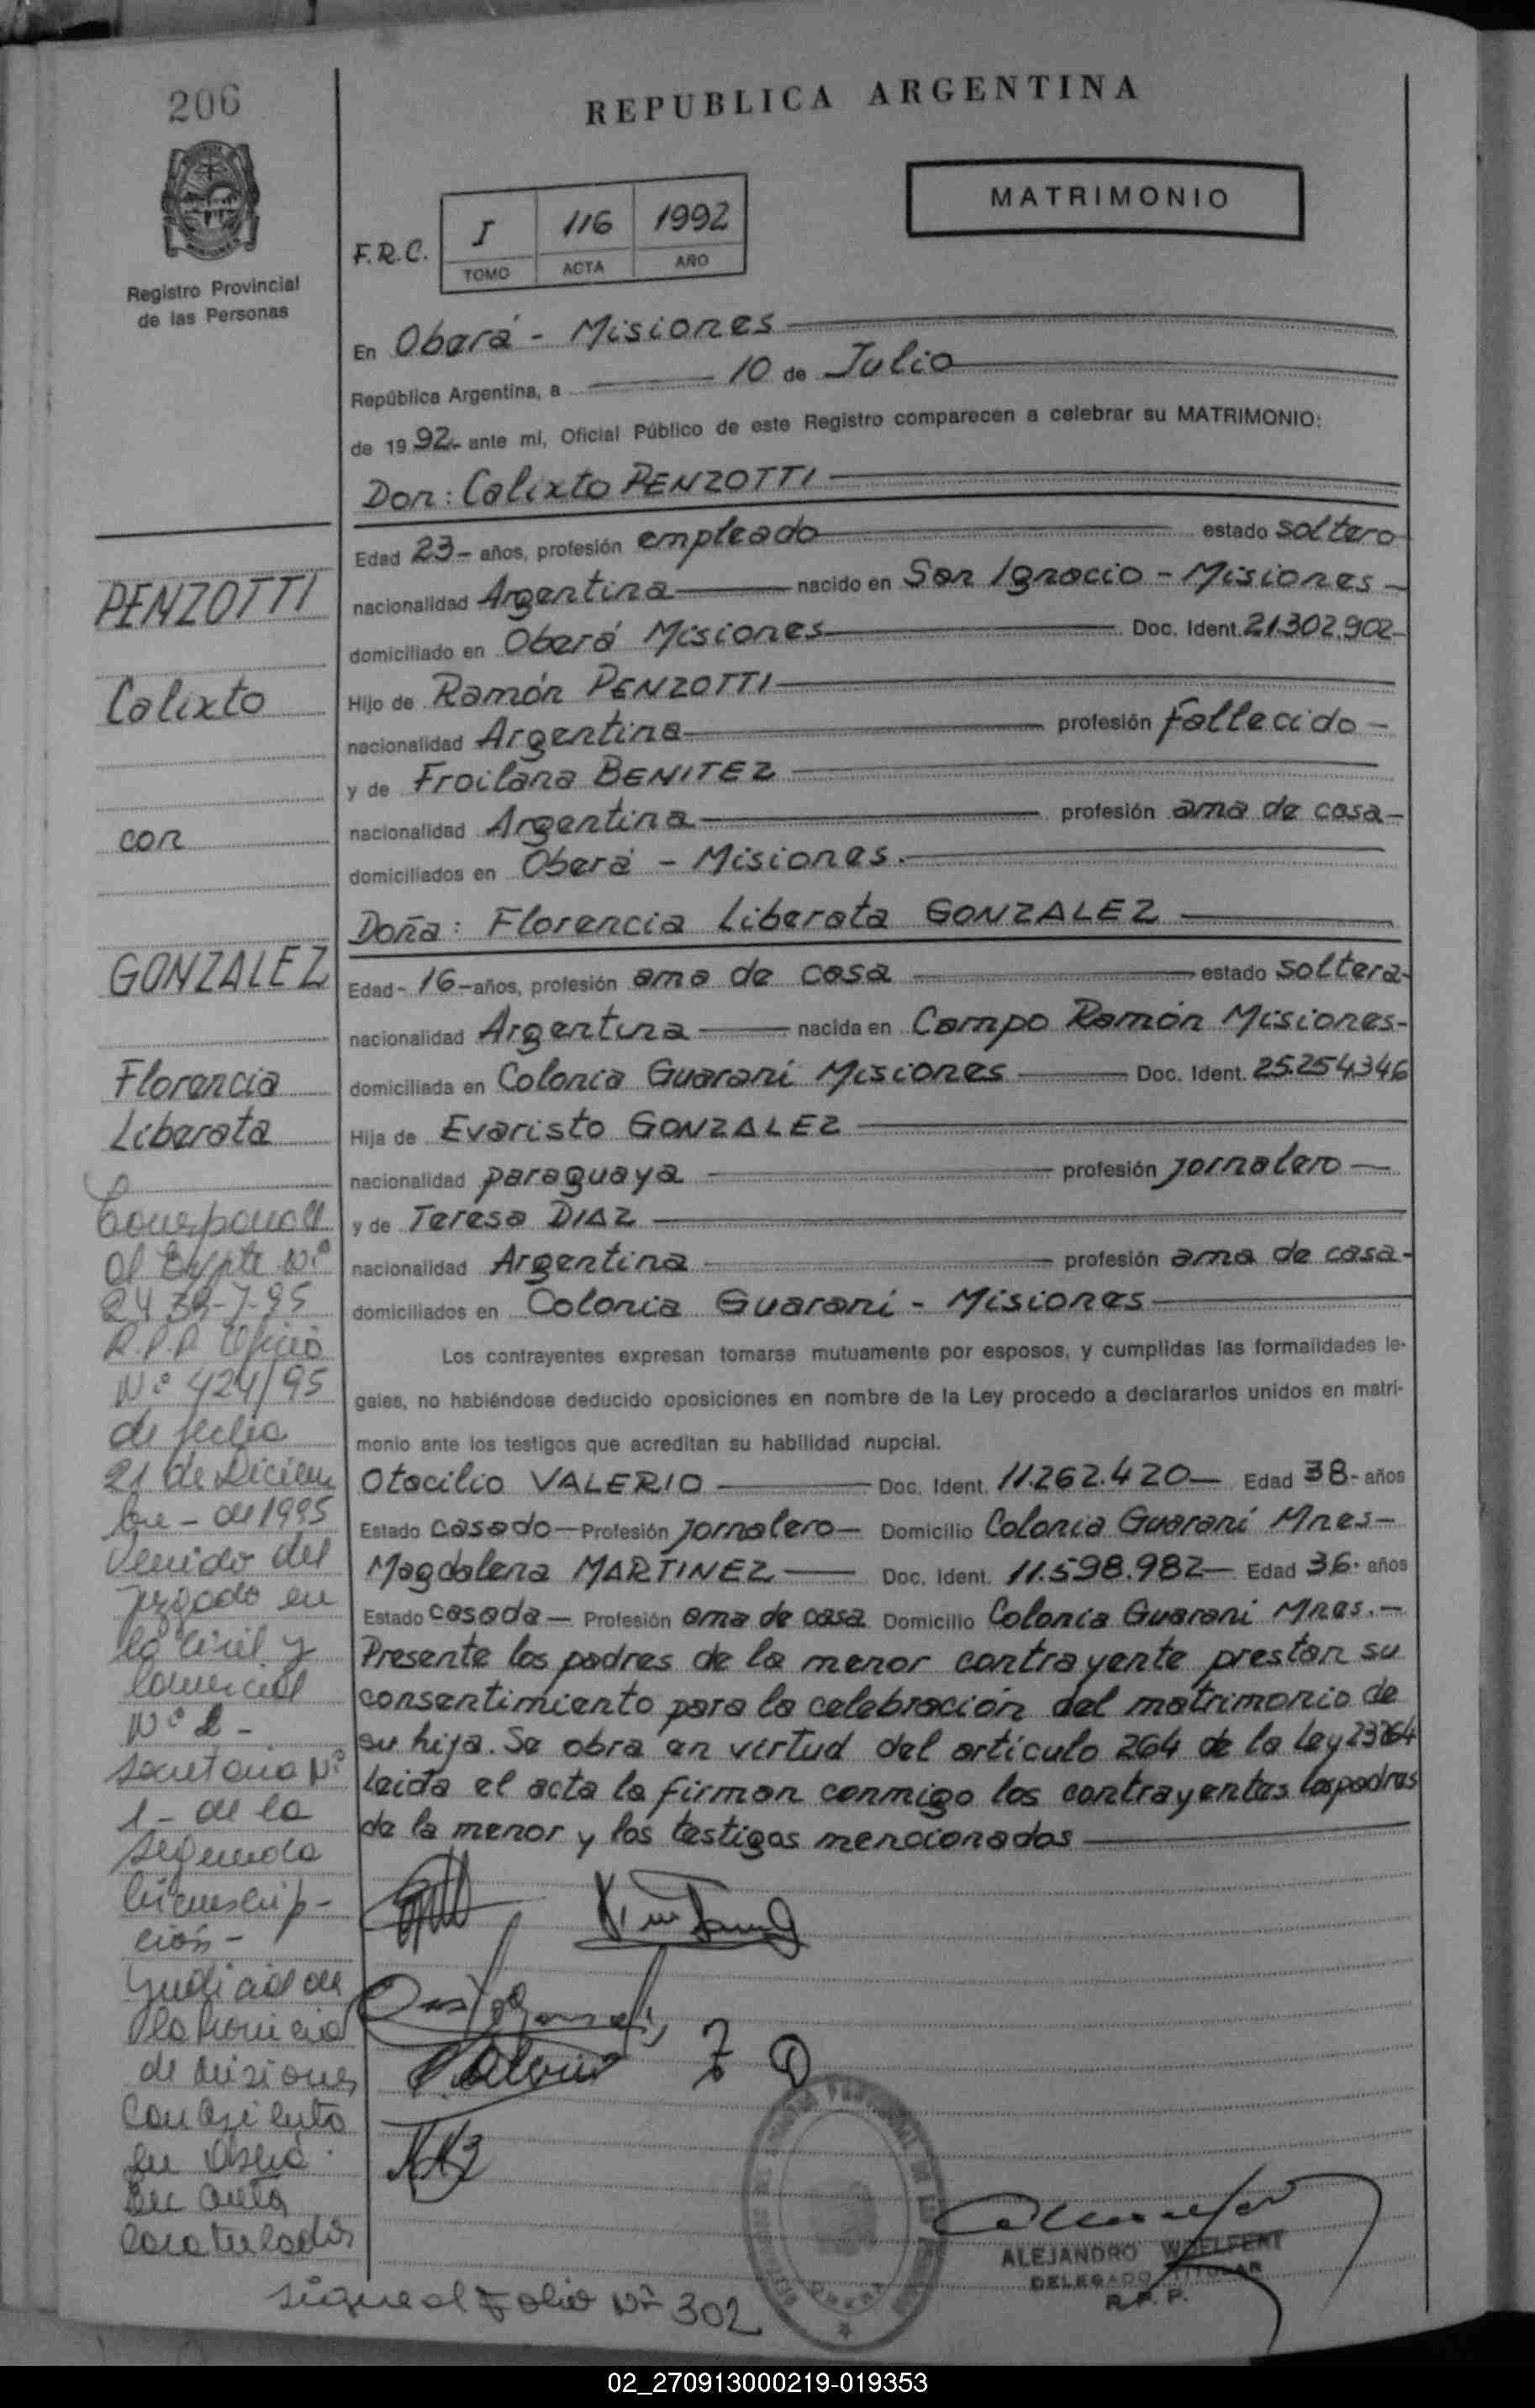 206
REPUBLICA ARGENTINA
MATRIMONIO
F.R.C.
I 116 1992
TOMO ACTA AÑO
Registro Provincial
de las Personas
En Oberá - Misiones
República Argentina, a 10 de Julio
de 1992 ante mi, Oficial Público de este Registro comparecen a celebrar su MATRIMONIO:
Don: Calixto PENZOTTI
Edad 23- años, profesión empleado estado soltero
nacionalidad Argentina nacido en San Ignacio - Misiones -
domiciliado en Oberá Misiones Doc. Ident. 21.302.902-
Hijo de Ramón PENZOTTI
nacionalidad Argentina profesión Fallecido -
y de Froilana BENITEZ
nacionalidad Argentina profesión ama de casa -
domiciliados en Oberá - Misiones.
Doña: Florencia Liberata GONZALEZ
Edad - 16 - años, profesión ama de casa estado soltera-
nacionalidad Argentina nacida en Campo Ramón Misiones-
domiciliada en Colonia Guaraní Misiones Doc. Ident. 25.254.346
Hija de Evaristo GONZALEZ
nacionalidad paraguaya profesión jornalero -
y de Teresa DIAZ
nacionalidad Argentina profesión ama de casa-
domiciliados en Colonia Guaraní - Misiones
Los contrayentes expresan tomarse mutuamente por esposos, y cumplidas las formalidades le-
gales, no habiéndose deducido oposiciones en nombre de la Ley procedo a declararlos unidos en matri-
monio ante los testigos que acreditan su habilidad nupcial.
Otacilio VALERIO Doc. Ident. 11.262.420- Edad 38- años
Estado casado - Profesión jornalero - Domicilio Colonia Guaraní Mnes-
Magdalena MARTINEZ Doc. Ident. 11.598.982- Edad 36- años
Estado casada - Profesión ama de casa Domicilio Colonia Guarani Mnes.-
Presente los padres de la menor contrayente prestan su
consentimiento para la celebración del matrimonio de
su hija. Se obra en virtud del artículo 264 de la Ley 23264
Leida el acta la firman conmigo los contrayentes los padres
de la menor y los testigos mencionados
PENZOTTI
Calixto
con
GONZALEZ
Florencia
Liberata
al Expte Nº
R.P.P. Oficio
Nº 424/95
de fecha
21 de Diciem
bre - de 1995
Venido del
Juzgado en
lo Civil y
Comercial
Nº
Secretaria Nº
1 - de la
Segunda
Circunscrip-
ción -
Judicial de
la Provincia
de Misiones
Con asiento
en Oberá
En auto
Caratulados
Sigue al Folio Nº 302
ALEJANDRO WOELFERT
DELEGADO TITULAR
R.P.P.
02_270913000219-019353